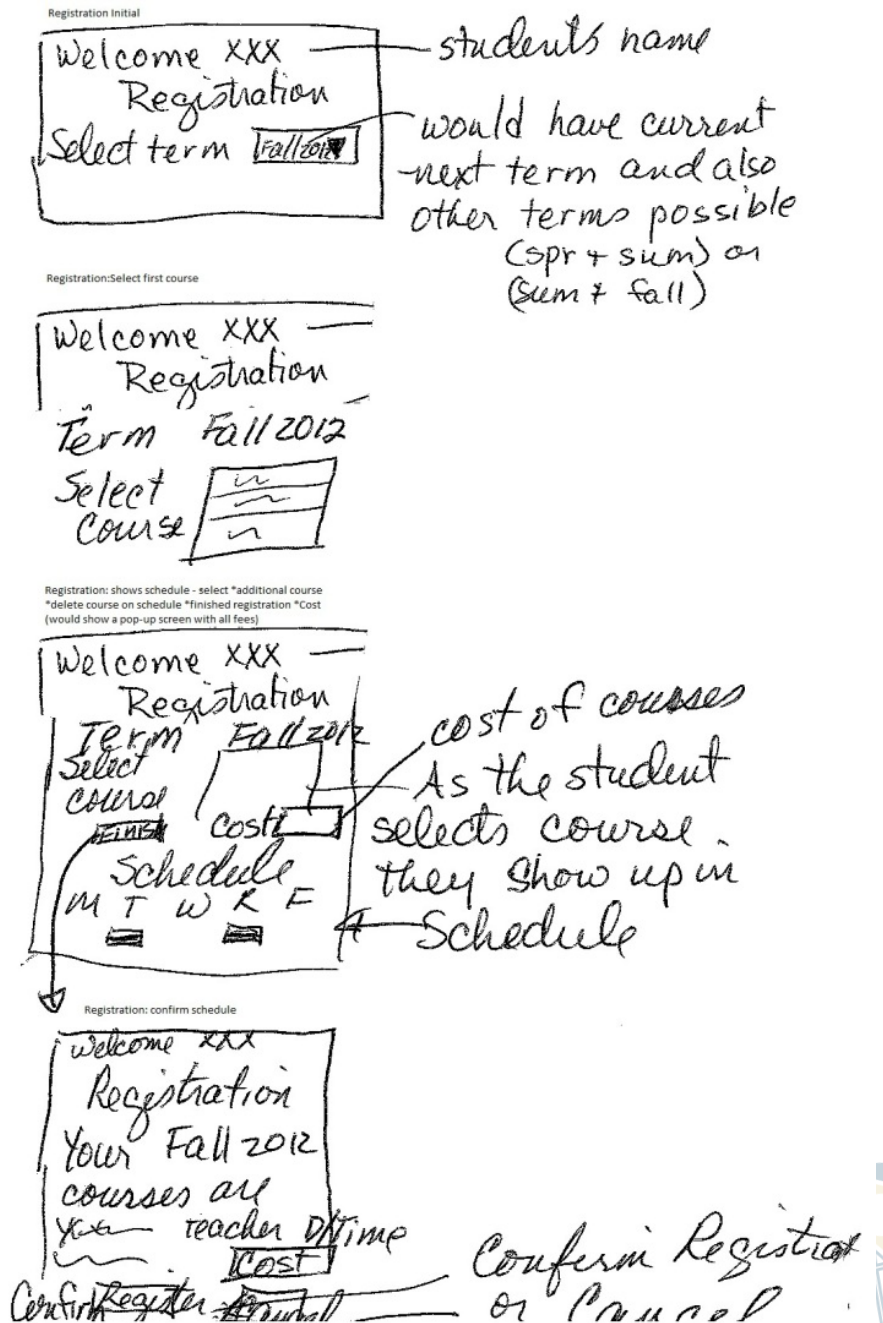 Registration Initial
Welcome XXX
students name
Registration
Select term Fall 2012
would have current
next term and also
other terms possible
(spr + sum) or
(sum + fall)
Registration:Select first course
Welcome XXX
Registration
Term Fall 2012
Select
Course
Registration: shows schedule - select *additional course
*delete course on schedule *finished registration *Cost
(would show a pop-up screen with all fees)
Welcome XXX
Registration
Term Fall 2012
Select
course
Finish Cost
Schedule
M T W R F
cost of courses
As the student
selects course
they show up in
Schedule
Registration: confirm schedule
Welcome XXX
Registration
Your Fall 2012
courses are
Teacher D/Time
Cost
Confirm Register
Confirm Registrat
or Cancel